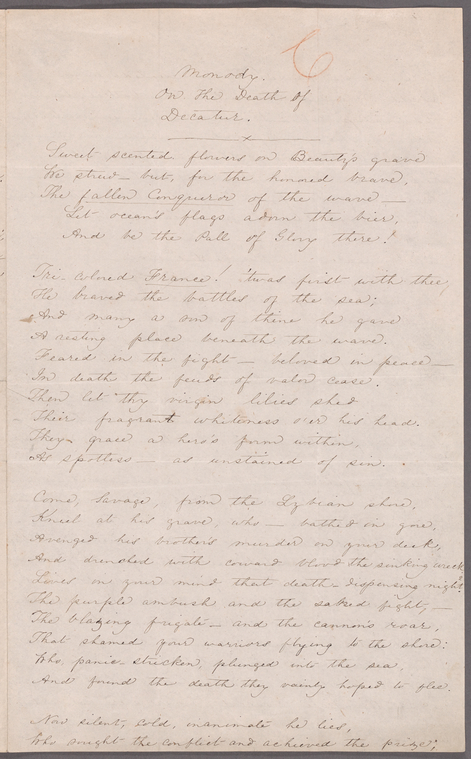 Monody.
On the Death of
Decatur.
Sweet scented flowers on Beauty's grave
We strew — but, for the honored brave,
The fallen Conqueror of the wave —
Let ocean's flags adorn the bier,
And be the Pall of Glory there!
Tri-colored France! 'twas first with thee,
He braved the battles of the sea;
And many a son of thine he gave
A resting place beneath the wave.
Feared in the fight — beloved in peace —
In death the feuds of valor cease.
Then let thy virgin lilies shed
Their fragrant whiteness o'er his head.
They grace a hero's form within,
As spotless — as unstained of sin.
Come, Savage, from the Lybian shore,
Kneel at his grave, who — bathed in gore,
Avenged his brother's murder on your deck,
And drenched with coward blood the sinking wreck,
Lives on your mind that death-dispensing night?
The purple ambush and the sabred fight, —
The blazing frigate — and the cannon's roar,
That shamed your warriors flying to the shore:
Who, panic-stricken, plunged into the sea,
And found the death they vainly hoped to flee.
Now silent, cold, inanimate he lies,
Who sought the conflict and achieved the prize;